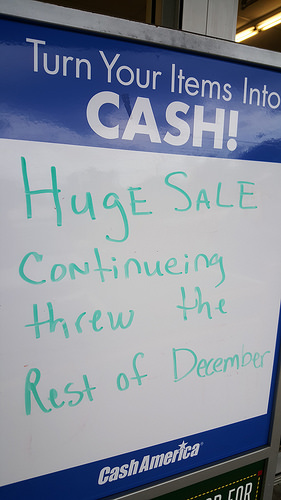 Turn Your Items Into
CASH!
HugE SALE
Continueing
threw the
Rest of December
Cash America
FOR